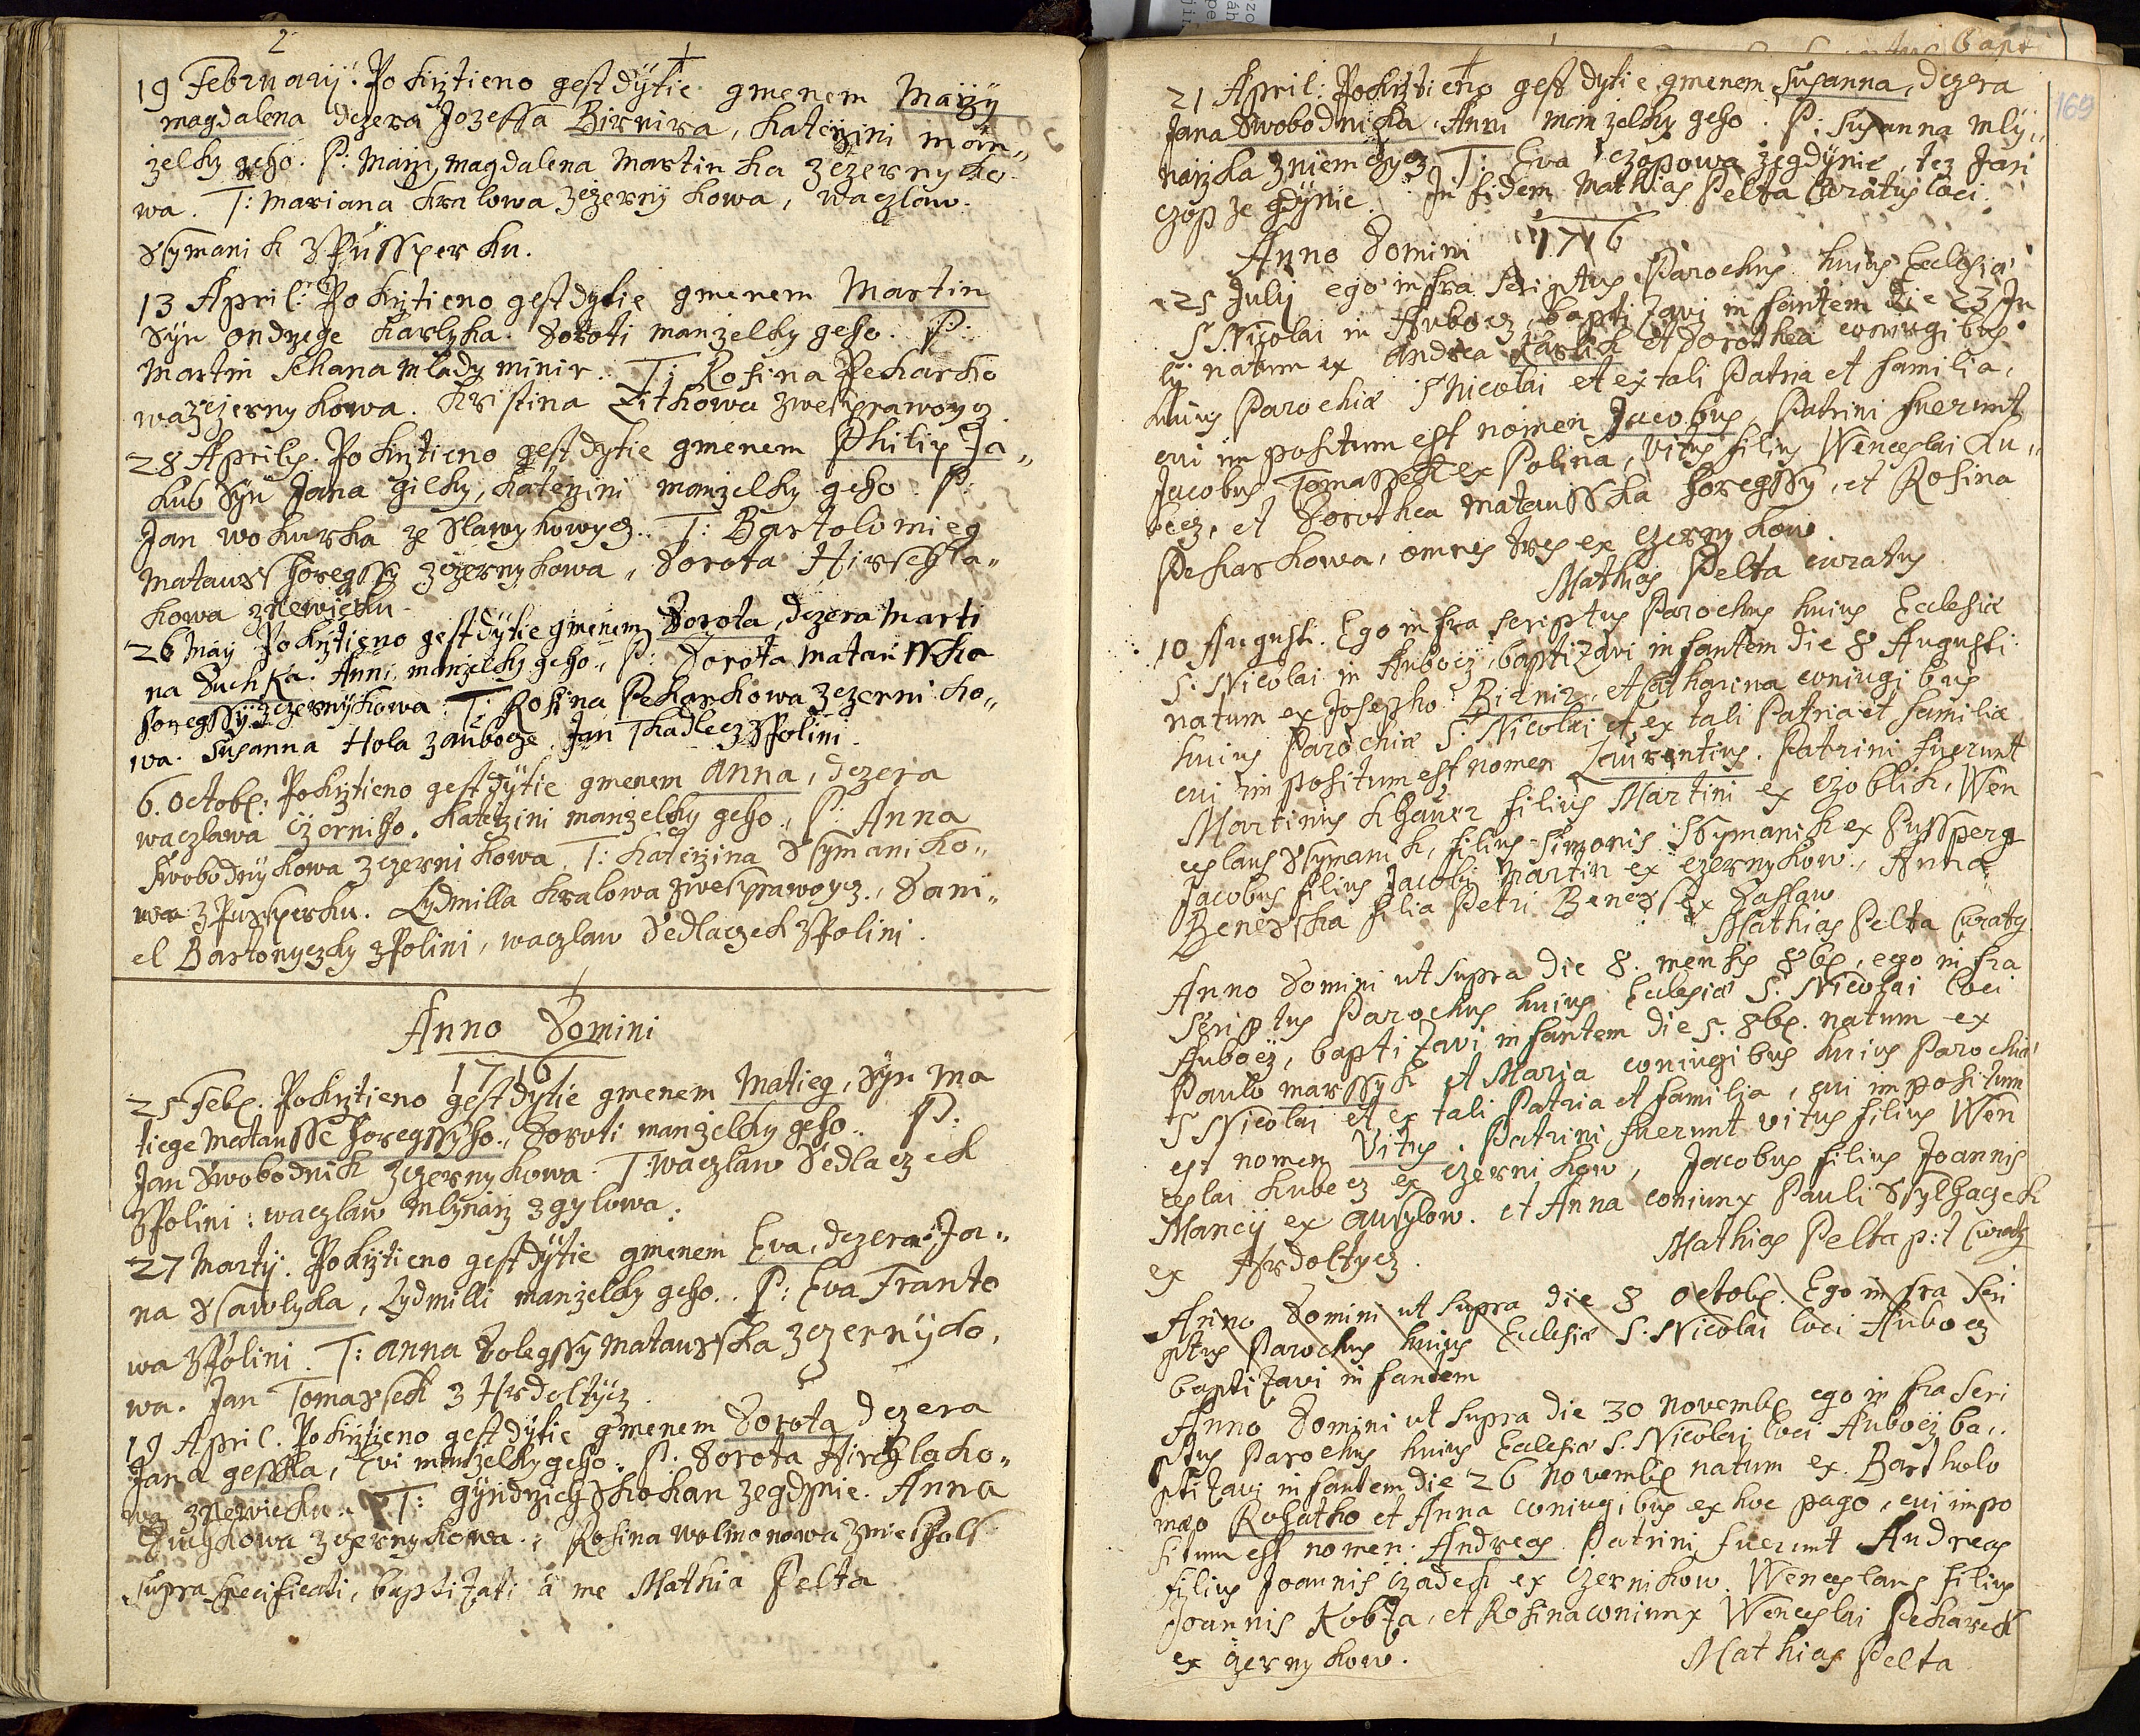 2
19 Februarij. Pokrztieno gest dytie gmenem Marzy
magdalena dczera Jozeffa Birnira, Katerzini man„
zelky geho. P: Marzy magdalena Martinka z czernyko
wa. T: Mariana Kralowa z czernykowa, waczlaw
Ssymanik z Pussperku.
13 April: Pokrztieno gest dytie gmenem Martin
Syn ondrzege Karlyka. Doroti manzelky geho. P:
Martin Schana mlady minir. T: Rosina Pekarko
wa z czernykowa. Kristina
28 Aprilis. Pokrztieno gest dytie gmenem Philip Ja„
kub Syn Jana Gilky, Katerzini manzelky geho P:
Jan wokurka ze Slawykowycz. T: Bartolomieg
Matauss horegssy z czernykowa, Dorota Hirschla„
kowa z newiczku.
26 May Pokrztieno gest dytie gmenem Dorota, dczera Marti
na Duchka. Anni manzelky geho, P: Dorota Matausska
horegssy z czernykowa T: Rosina Pekarkowa z czerniko„
wa. Susanna Hola z auborze Jan Tkadlecz z Polini
6. Octobr: Pokrztieno gest dytie gmenem Anna, dczera
waczlawa Czerniho. Katerzini manzelky geho, P: Anna
Swobodnykowa z czernikowa. T: Katerzina Ssymaniko„
wa z Pussperku. Lydmilla Kralowa z wesprawowycz. Dani„
el Bartonyczky z Polini, waczlaw Sedlaczek z Polini.
Anno Domini
1716
25 Febr. Pokrztieno gest dytie gmenem Matieg, Syn Ma
tiege Matausse horegssyho, Doroti manzelky geho. P:
Jan Swobodnik z czernykowa. T: waczlaw Sedlaczek
z Polini: waczlaw Mlynarz z gylowa.
27 Martij. Pokrztieno gest dytie gmenem Eva, dczera Ja„
na Ssawlyka, Lydmilli manzelky geho. P: Eva Franto
wa z Polini. T: Anna Dolegssy Matausska z czernyko,
wa. Jan Tomassek z Hrdoltycz
19 April. Pokrztieno gest dytie gmenem Dorota dczera
Jana gesska, Evi manzelky geho. P. Dorota Hirchlako„
wa z newiczku. T: Gyndrzich Skokan ze gdynie. Anna
Duchkowa z czernykowa. Rosina wolmonowa z
Supra Specificati, baptizati à me Mathia Pelta
169
Bapt
21 April: Pokrztieno gest dytie gmenem Susanna, dczera
Jana Swobodnika Anni manzelky geho. P: Susanna mly„
narzka z niemczycz T: Eva czopowa ze gdynie, tez Jan
czop ze gdynie. In fidem Mathias Pelta Curatus loci.
Anno Domini 1716
25 Julij ego infra Scriptus Parochus huius Ecclesiæ
S. Nicolai in Aubocz, baptizavi infantem die 23 Ju
lij natum ex Andrea Karlik et Dorothea coniugibus
huius Parochiæ S Nicolai et ex tali Patria et familia,
cui impositum est nomen Jacobus, Patrini fuerunt
Jacobus Tomassek ex Polina, Vitus filius Wenceslai Ku„
becz, et Dorothea Matausska horegssy, et Rosina
Pekarkowa, omnes tres ex czernykow
Mathias Pelta curatus
10 Augusti. Ego infra scriptus Parochus huius Ecclesiæ
S. Nicolai in Aubocz, baptizavi infantem die 8 Augusti
natum ex Josepho Birnir, et Catharina coniugibus
huius Parochiæ S. Nicolai et ex tali Patria et familia
cui impositum est nomen Laurentius. Patrini fuerunt
Martinus Khauer filius Martini ex czoblik, Wen
ceslaus Ssymanik, filius Simonis Ssymanik ex Pussperg
Jacobus filius Jacobi Martin ex czernykow, Anna
Benesska filia Petri Beness ex Saslaw
Mathias Pelta Curatus
Anno Domini ut supra die 8. mensis 8bris, ego infra
Scriptus Parochus huius Ecclesiæ S. Nicolai loci
Aubocz, baptizavi infantem die 5. 8bris. natum ex
Paulo Marssyk et Maria coniugibus huius Parochiæ
S Nicolai et ex tali Patria et familia, cui impositum
est nomen Vitus. Patrini fuerunt Vitus filius Wen
ceslai Kubecz ex czernikow, Jacobus filius Joannis
Mancij ex Auslow. et Anna coniunx Pauli Ssylhaczek
ex Hrdoltycz. Mathias Pelta p:t Curatus
Anno Domini ut supra die 8 octobr. Ego infra Scri
ptus Parochus huius Ecclesiæ S. Nicolai loci Aubocz
baptizavi infantem
Anno Domini ut supra die 30 novembris ego infra scri
ptus Parochus huius Ecclesiæ S. Nicolai loci Aubocz ba„
ptizavi infantem die 26 Novembris natum ex Bartholo
mæo Rohatko et Anna coniugibus ex hoc pago, cui impo
situm est nomen Andreas Patrini fuerunt Andreas
filius Joannis Czadek ex Czernikow. Wenceslaus filius
Joannis Kobza, et Rosina coniunx Wenceslai Pekarek
ex czernykow. Mathias Pelta